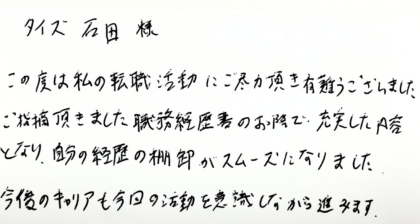 タイズ 石田 様
この度は私の転職活動にご尽力頂き有難うございました
ご指摘頂きました職務経歴書のお陰で、充実した内容
となり、自分の経歴の棚卸がスムーズになりました
今後のキャリアも今回の活動を意識しながら進みます.